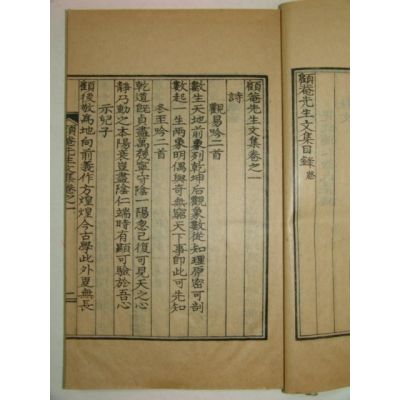 顧菴先生文集目錄 終
顧菴先生文集卷之一
詩
觀易吟二首
數生天地前象列乾坤后觀象數從知理原密可剖
數起一生兩象明偶與奇無窮天下事即此可先知
冬至吟二首
乾道旣貞盡萬殘寧守陰一陽忽已復可見天之心
靜乃動之本陽衰豈盡陰仁端時有顯可驗於吾心
示子
顧後敬爲地向前義作方煌煌今古學此外無長
顧菴先生文集卷之一 一